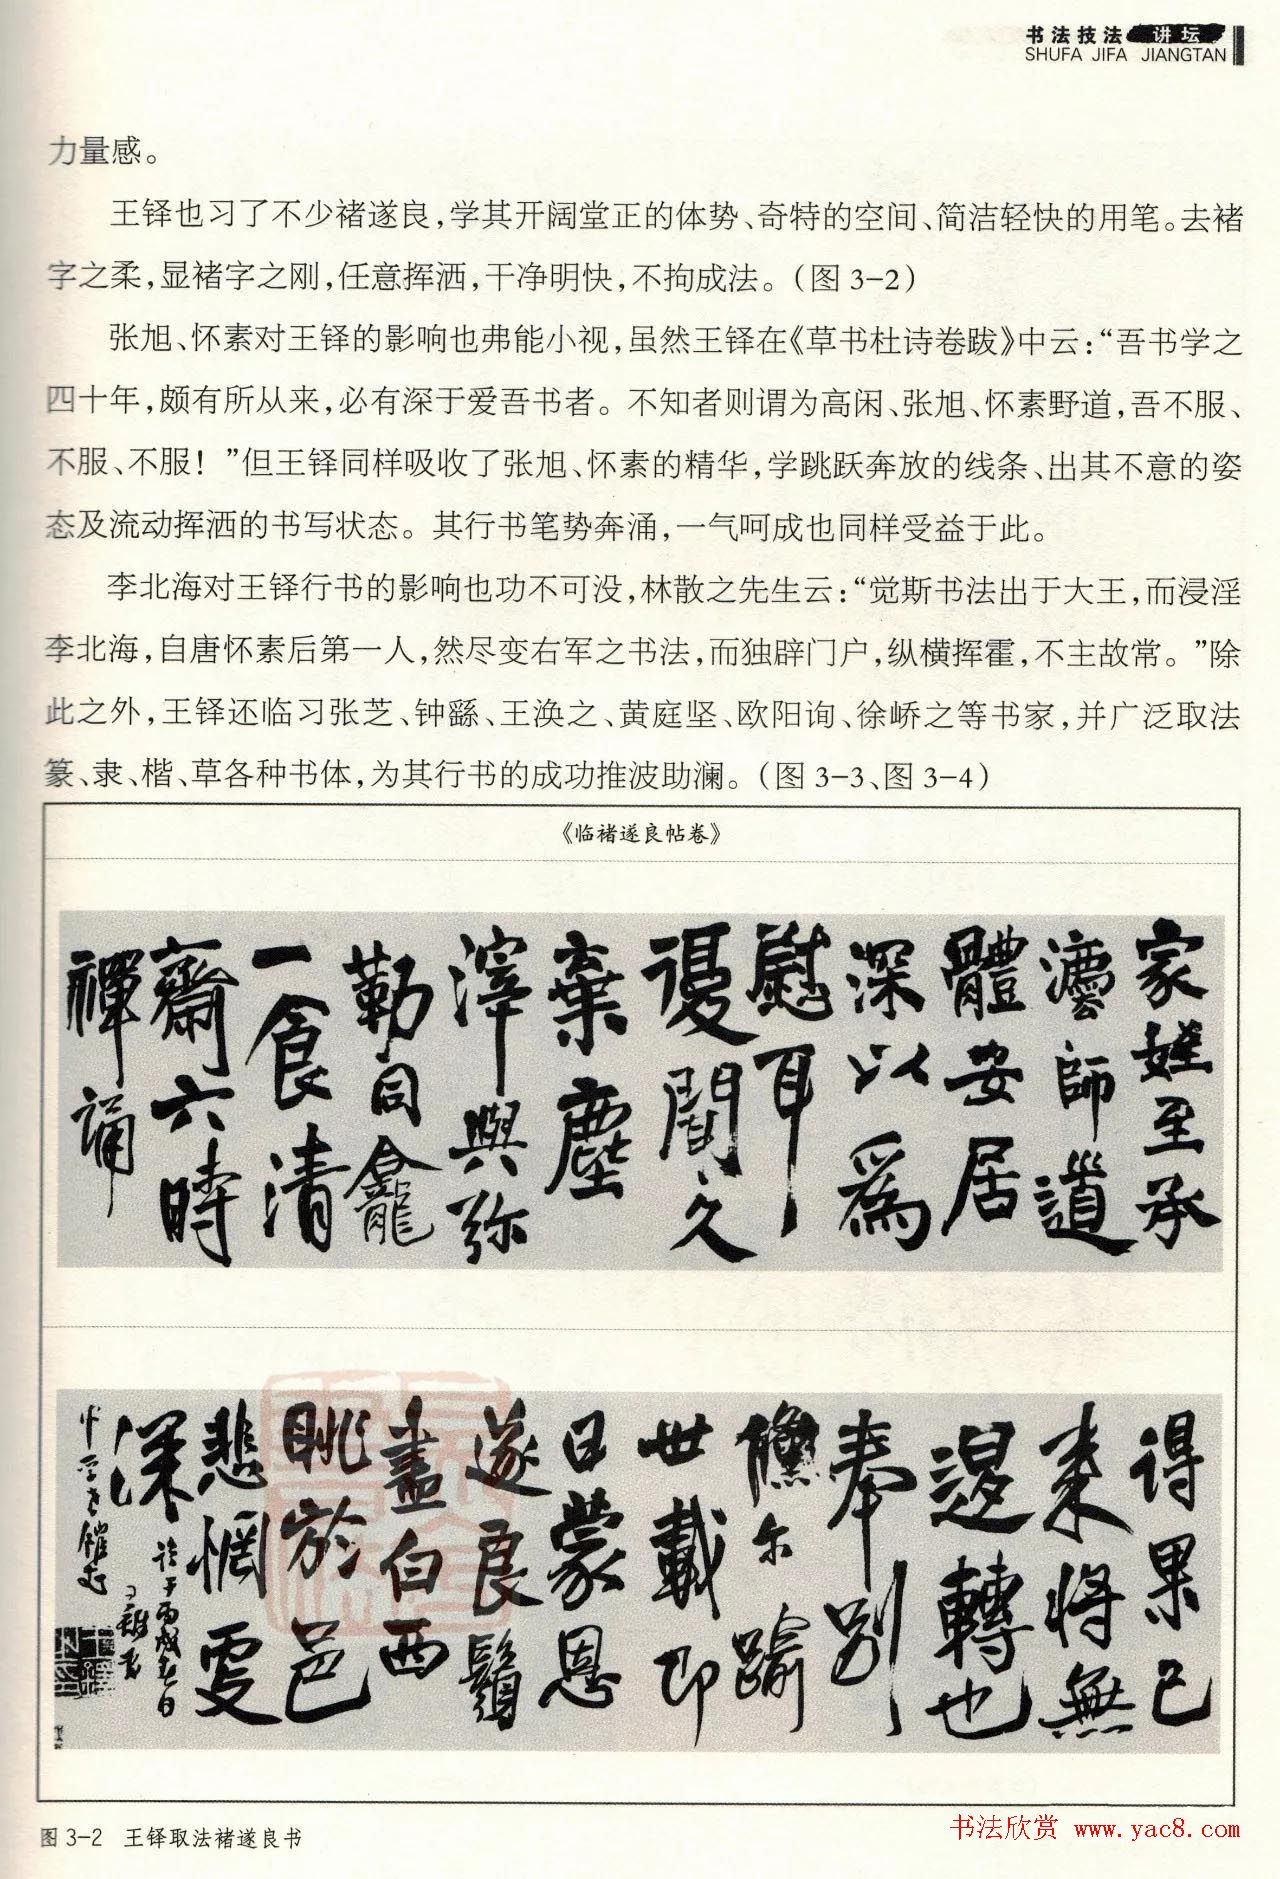 书法技法 讲坛
SHUFA JIFA JIANGTAN
力量感。
王铎也习了不少褚遂良,学其开阔堂正的体势、奇特的空间、简洁轻快的用笔。去褚
字之柔,显褚字之刚,任意挥洒,干净明快,不拘成法。(图 3-2)
张旭、怀素对王铎的影响也弗能小视,虽然王铎在《草书杜诗卷跋》中云:“吾书学之
四十年,颇有所从来,必有深于爱吾书者。不知者则谓为高闲、张旭、怀素野道,吾不服、
不服、不服!”但王铎同样吸收了张旭、怀素的精华,学跳跃奔放的线条、出其不意的姿
态及流动挥洒的书写状态。其行书笔势奔涌,一气呵成也同样受益于此。
李北海对王铎行书的影响也功不可没,林散之先生云:“觉斯书法出于大王,而浸淫
李北海,自唐怀素后第一人,然尽变右军之书法,而独辟门户,纵横挥霍,不主故常。”除
此之外,王铎还临习张芝、钟繇、王涣之、黄庭坚、欧阳询、徐峤之等书家,并广泛取法
篆、隶、楷、草各种书体,为其行书的成功推波助澜。(图 3-3、图 3-4)
《临褚遂良帖卷》
家姪至承
灋師道
體安居
深以為
慰耳
復聞久
棄塵
滓與弥
勒同龕
一食清
齋六時
禪誦
得果已
来将無
退轉也
奉别
儵尔踰
世載即
日蒙恩
遂良鬚
盡白西
眺於邑
悲惘更
深
图 3-2 王铎取法褚遂良书
书法欣赏 www.yac8.com